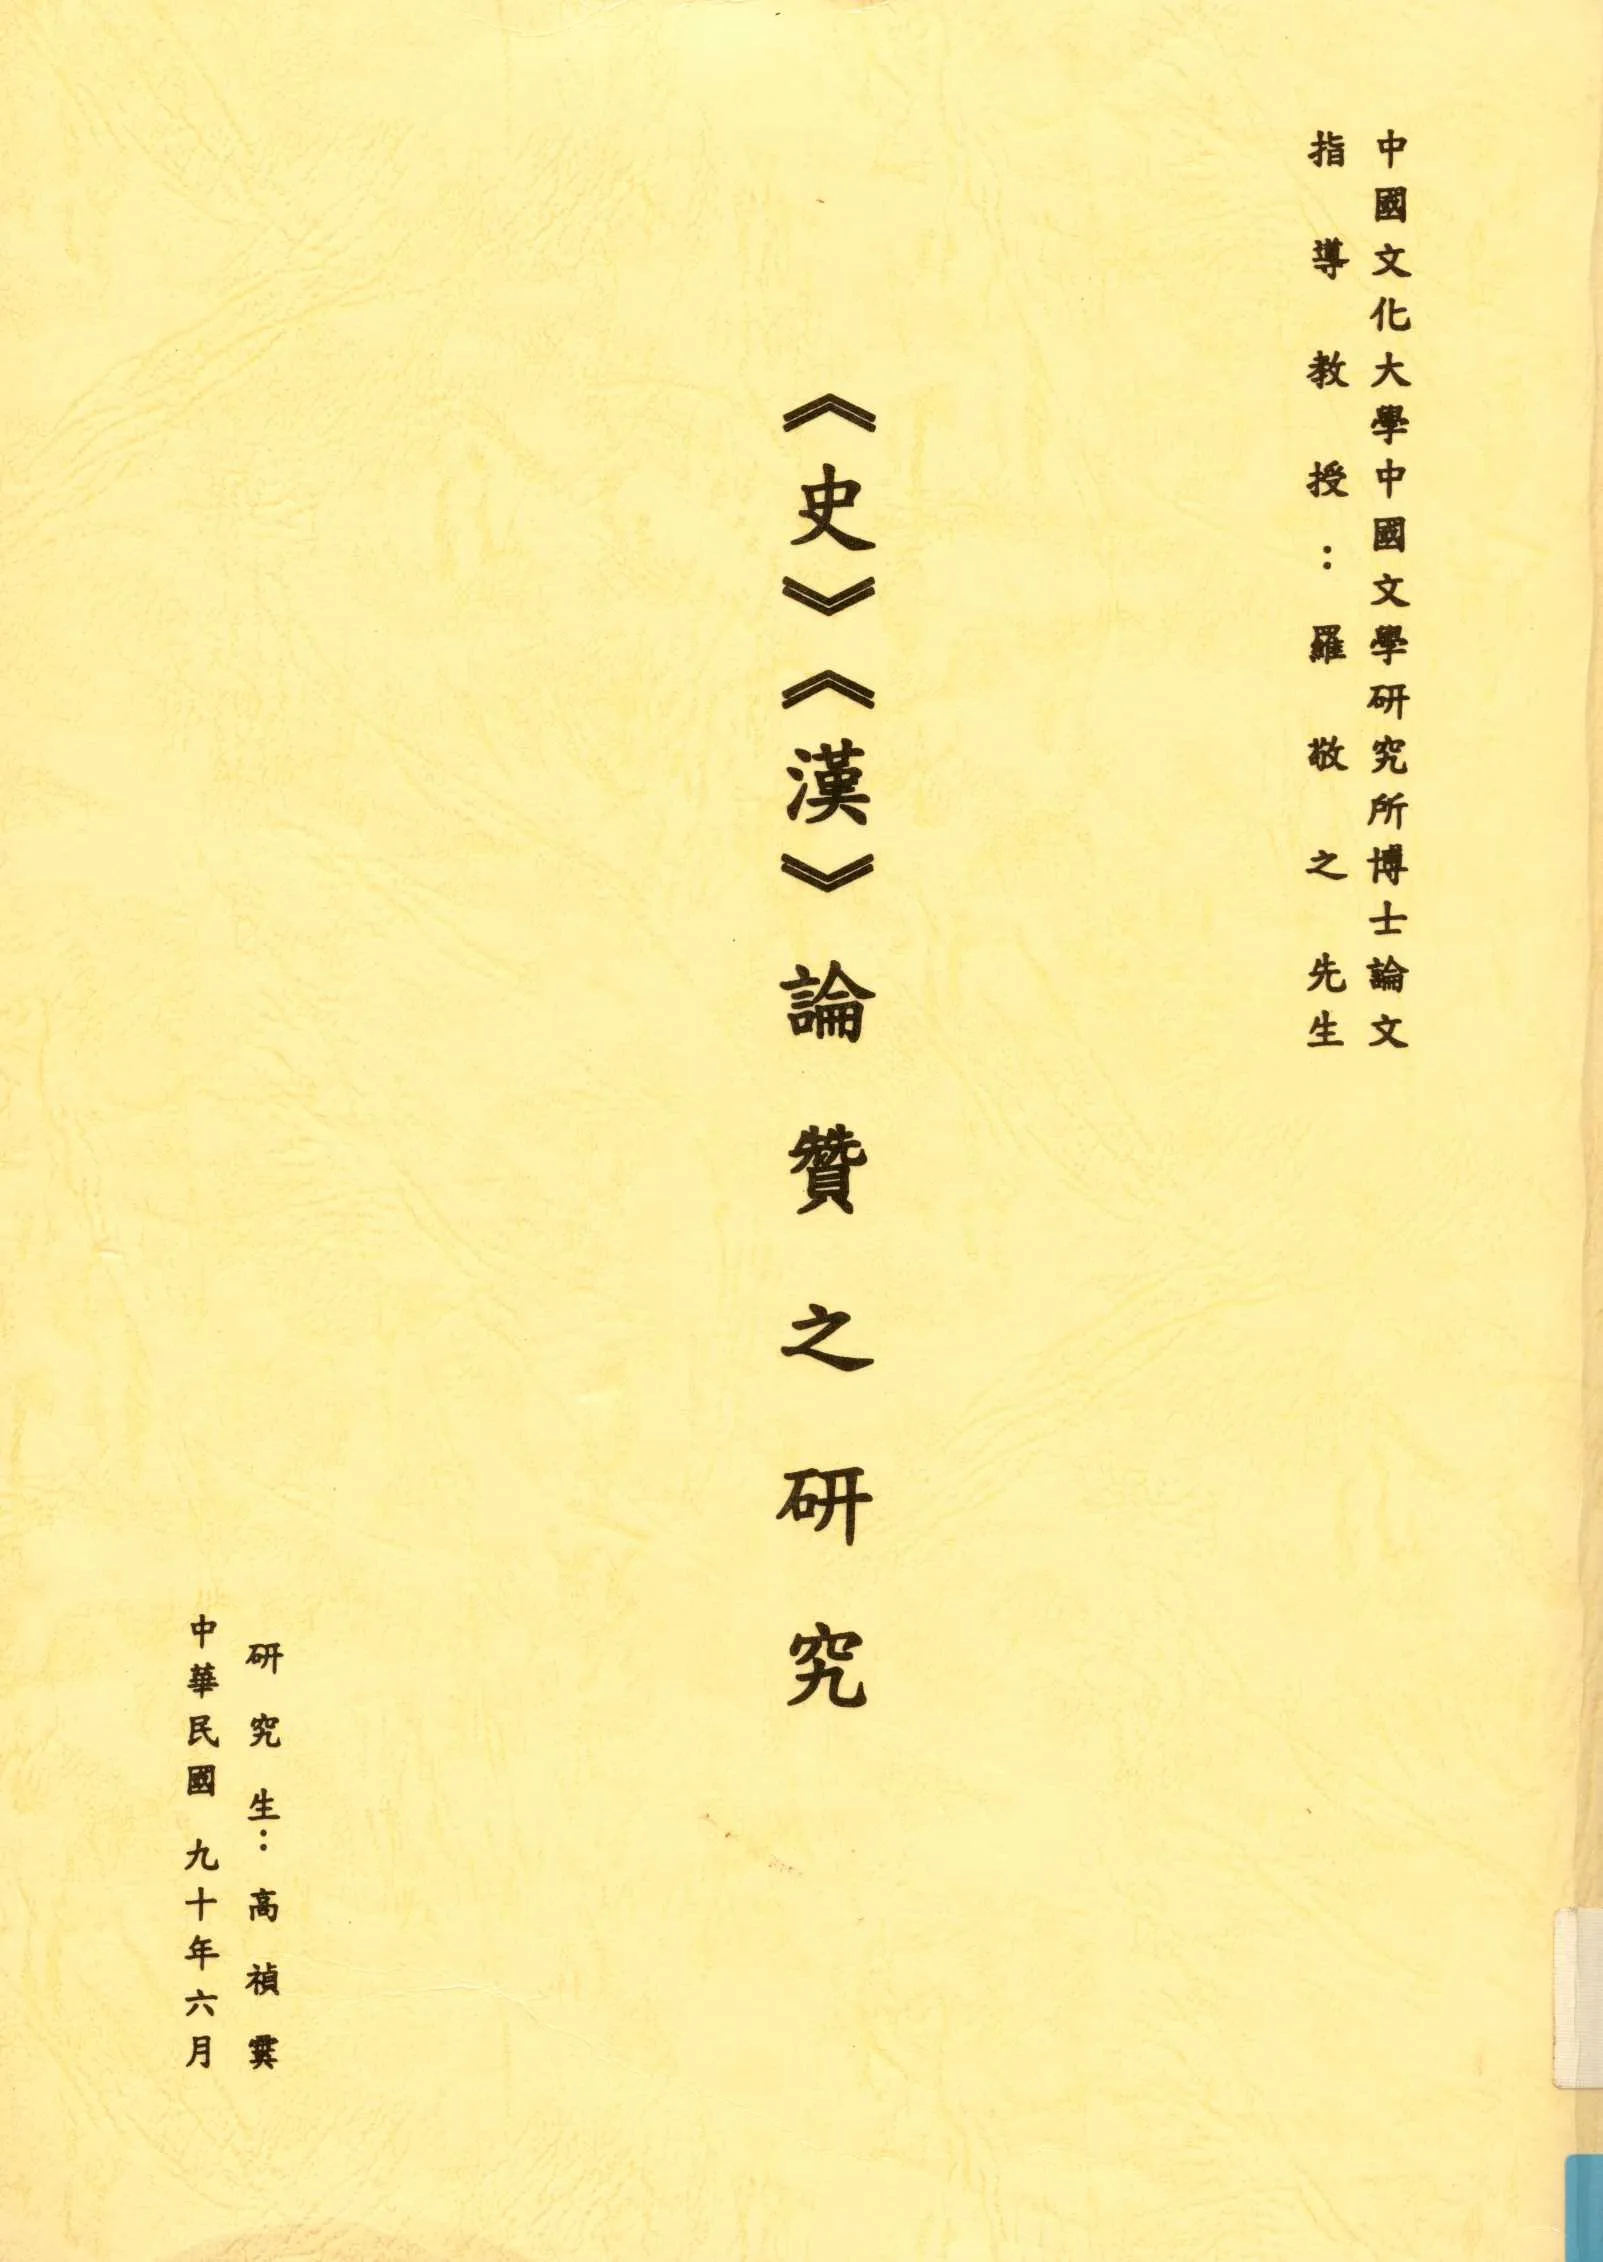 中國文化大學中國文學研究所博士論文
指導教授：羅敬之先生
《史》《漢》論贊之研究
研究生：高禎霙
中華民國 九十年六月